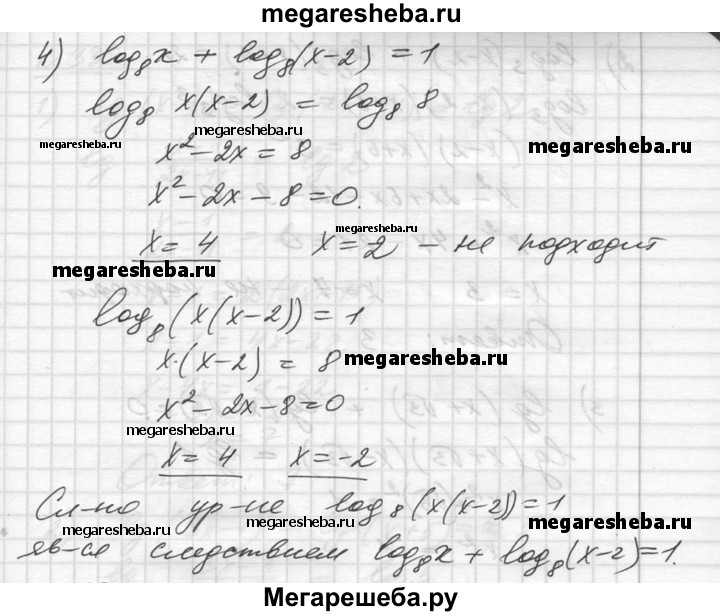 megaresheba.ru
4) log₈x + log₈(x-2) = 1
log₈ x(x-2) = log₈ 8
megaresheba.ru
megaresheba.ru x²-2x = 8 megaresheba.ru
x²-2x-8=0.
x=4 x=2 - не подходит
megaresheba.ru
megaresheba.ru
log₈(x(x-2))=1
x·(x-2) = 8 megaresheba.ru
x²-2x-8=0
megaresheba.ru
x=4 x=-2
Сл-но ур-не log₈(x(x-2))=1
megaresheba.ru megaresheba.ru megaresheba.ru
яв-ся следствием log₈x + log₈(x-2)=1.
Мегарешеба.ру